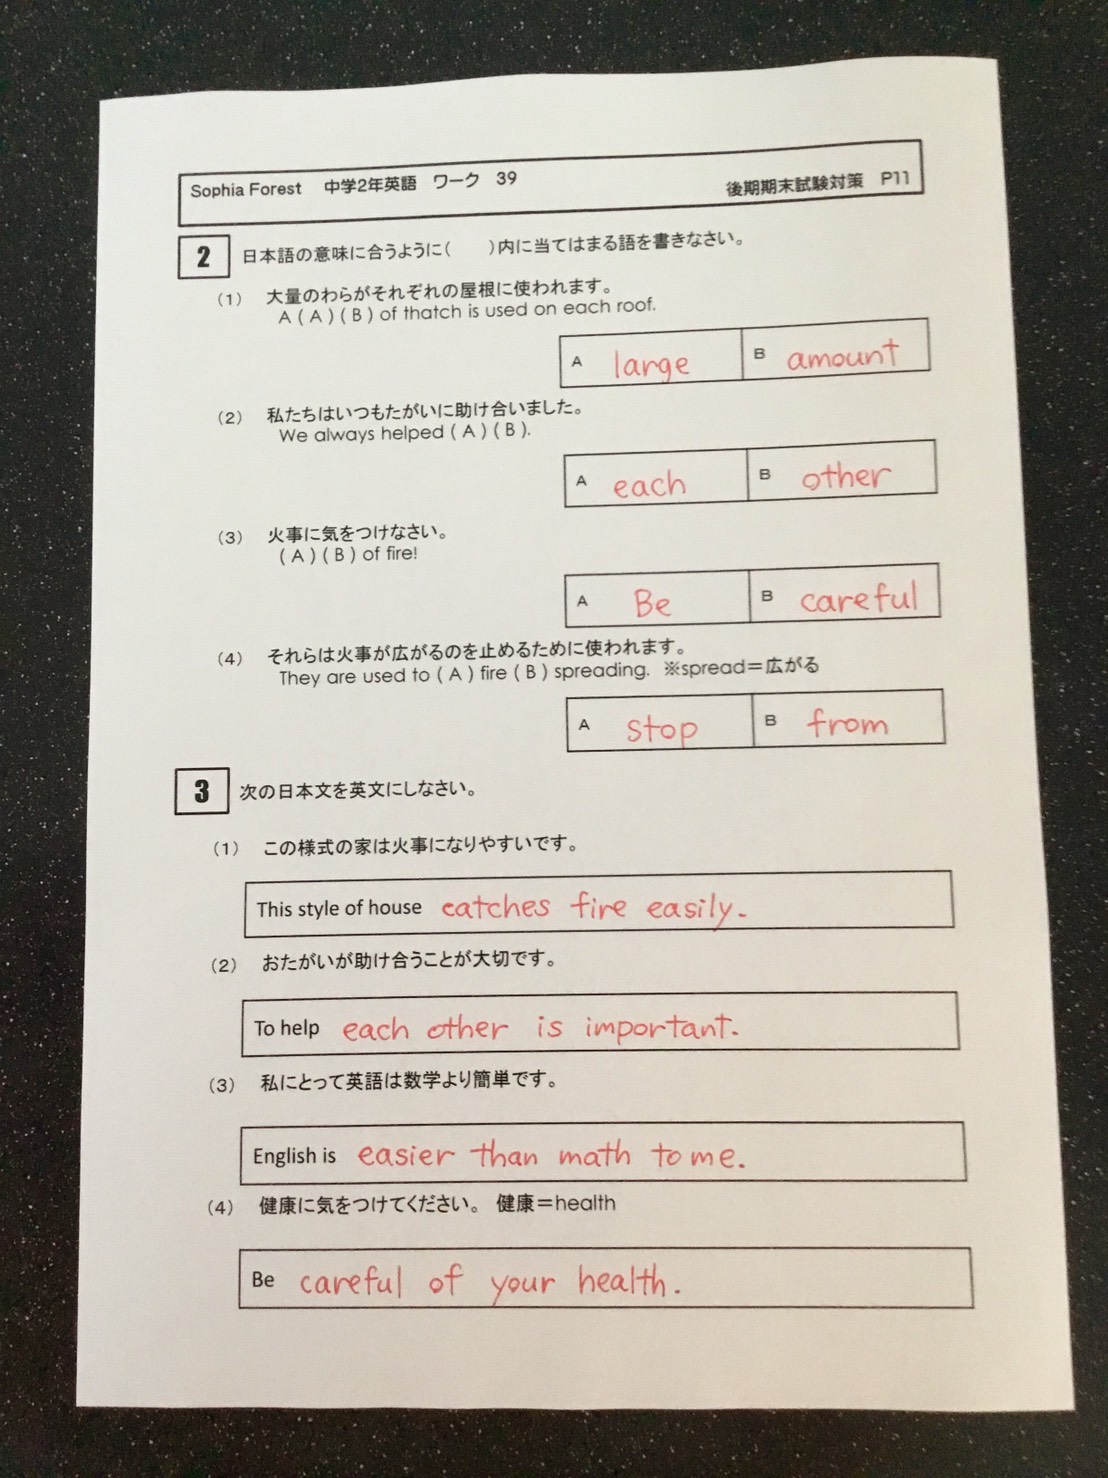 Sophia Forest 中学2年英語 ワーク 39
後期期末試験対策 P11
2 日本語の意味に合うように( )内に当てはまる語を書きなさい。
(1) 大量のわらがそれぞれの屋根に使われます。
A ( A ) ( B ) of thatch is used on each roof.
A large B amount
(2) 私たちはいつもたがいに助け合いました。
We always helped ( A ) ( B ).
A each B other
(3) 火事に気をつけなさい。
( A ) ( B ) of fire!
A Be B careful
(4) それらは火事が広がるのを止めるために使われます。
They are used to ( A ) fire ( B ) spreading. ※spread＝広がる
A stop B from
3 次の日本文を英文にしなさい。
(1) この様式の家は火事になりやすいです。
This style of house catches fire easily.
(2) おたがいが助け合うことが大切です。
To help each other is important.
(3) 私にとって英語は数学より簡単です。
English is easier than math to me.
(4) 健康に気をつけてください。 健康＝health
Be careful of your health.